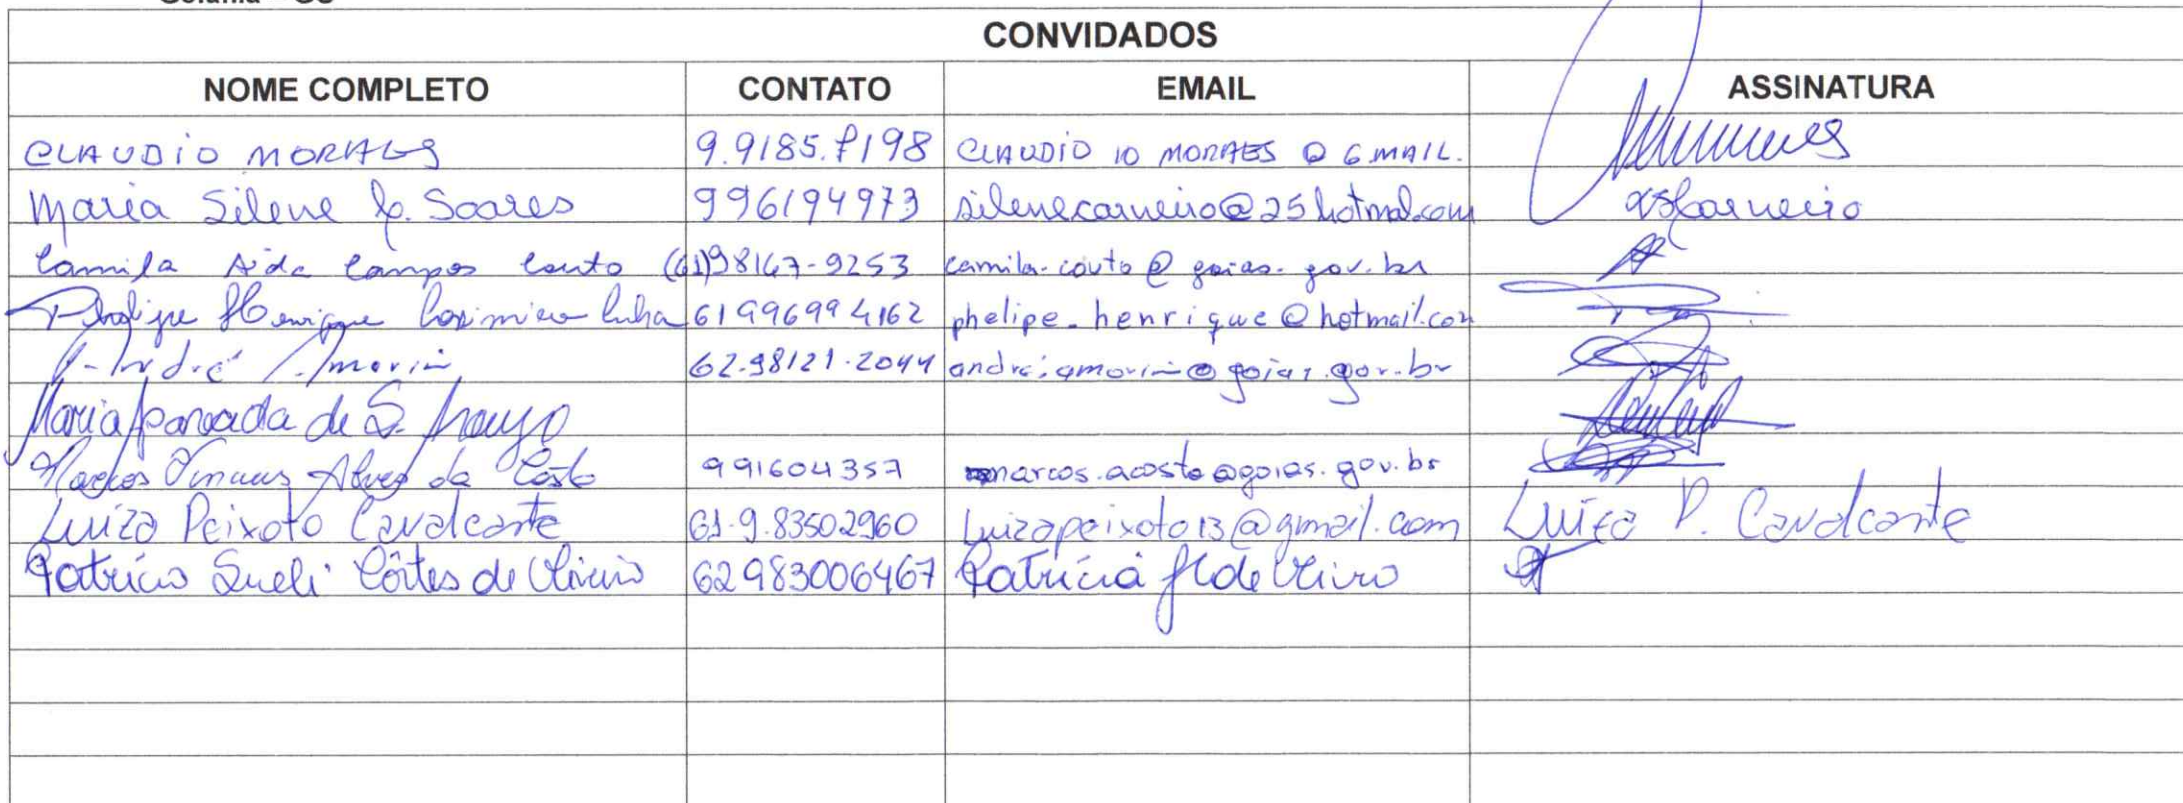 CONVIDADOS
NOME COMPLETO CONTATO EMAIL ASSINATURA
CLAUDIO MORAES 9.9185.8198 CLAUDIO 10 MORAES @ GMAIL.
Maria Silene C. Soares 996194973 silenecarneiro@25hotmal.com
Camila Aida Campos Couto (61)98167-9253 camila.couto@goias.gov.br
Phelipe Henrique 61996994162 phelipe.henrique@hotmail.com
André Amorim 62.98121.2044 andre.amorim@goias.gov.br
Maria Aparecida de S. Araujo
Marcos Vinicius Alves da Costa 991604357 marcos.acosta@goias.gov.br
Luiza Peixoto Cavalcante 61.9.83502960 Luizapeixoto13@gmail.com Luiza P. Cavalcante
Patrícia Sueli Côrtes de Oliveira 62983006467 Patrícia